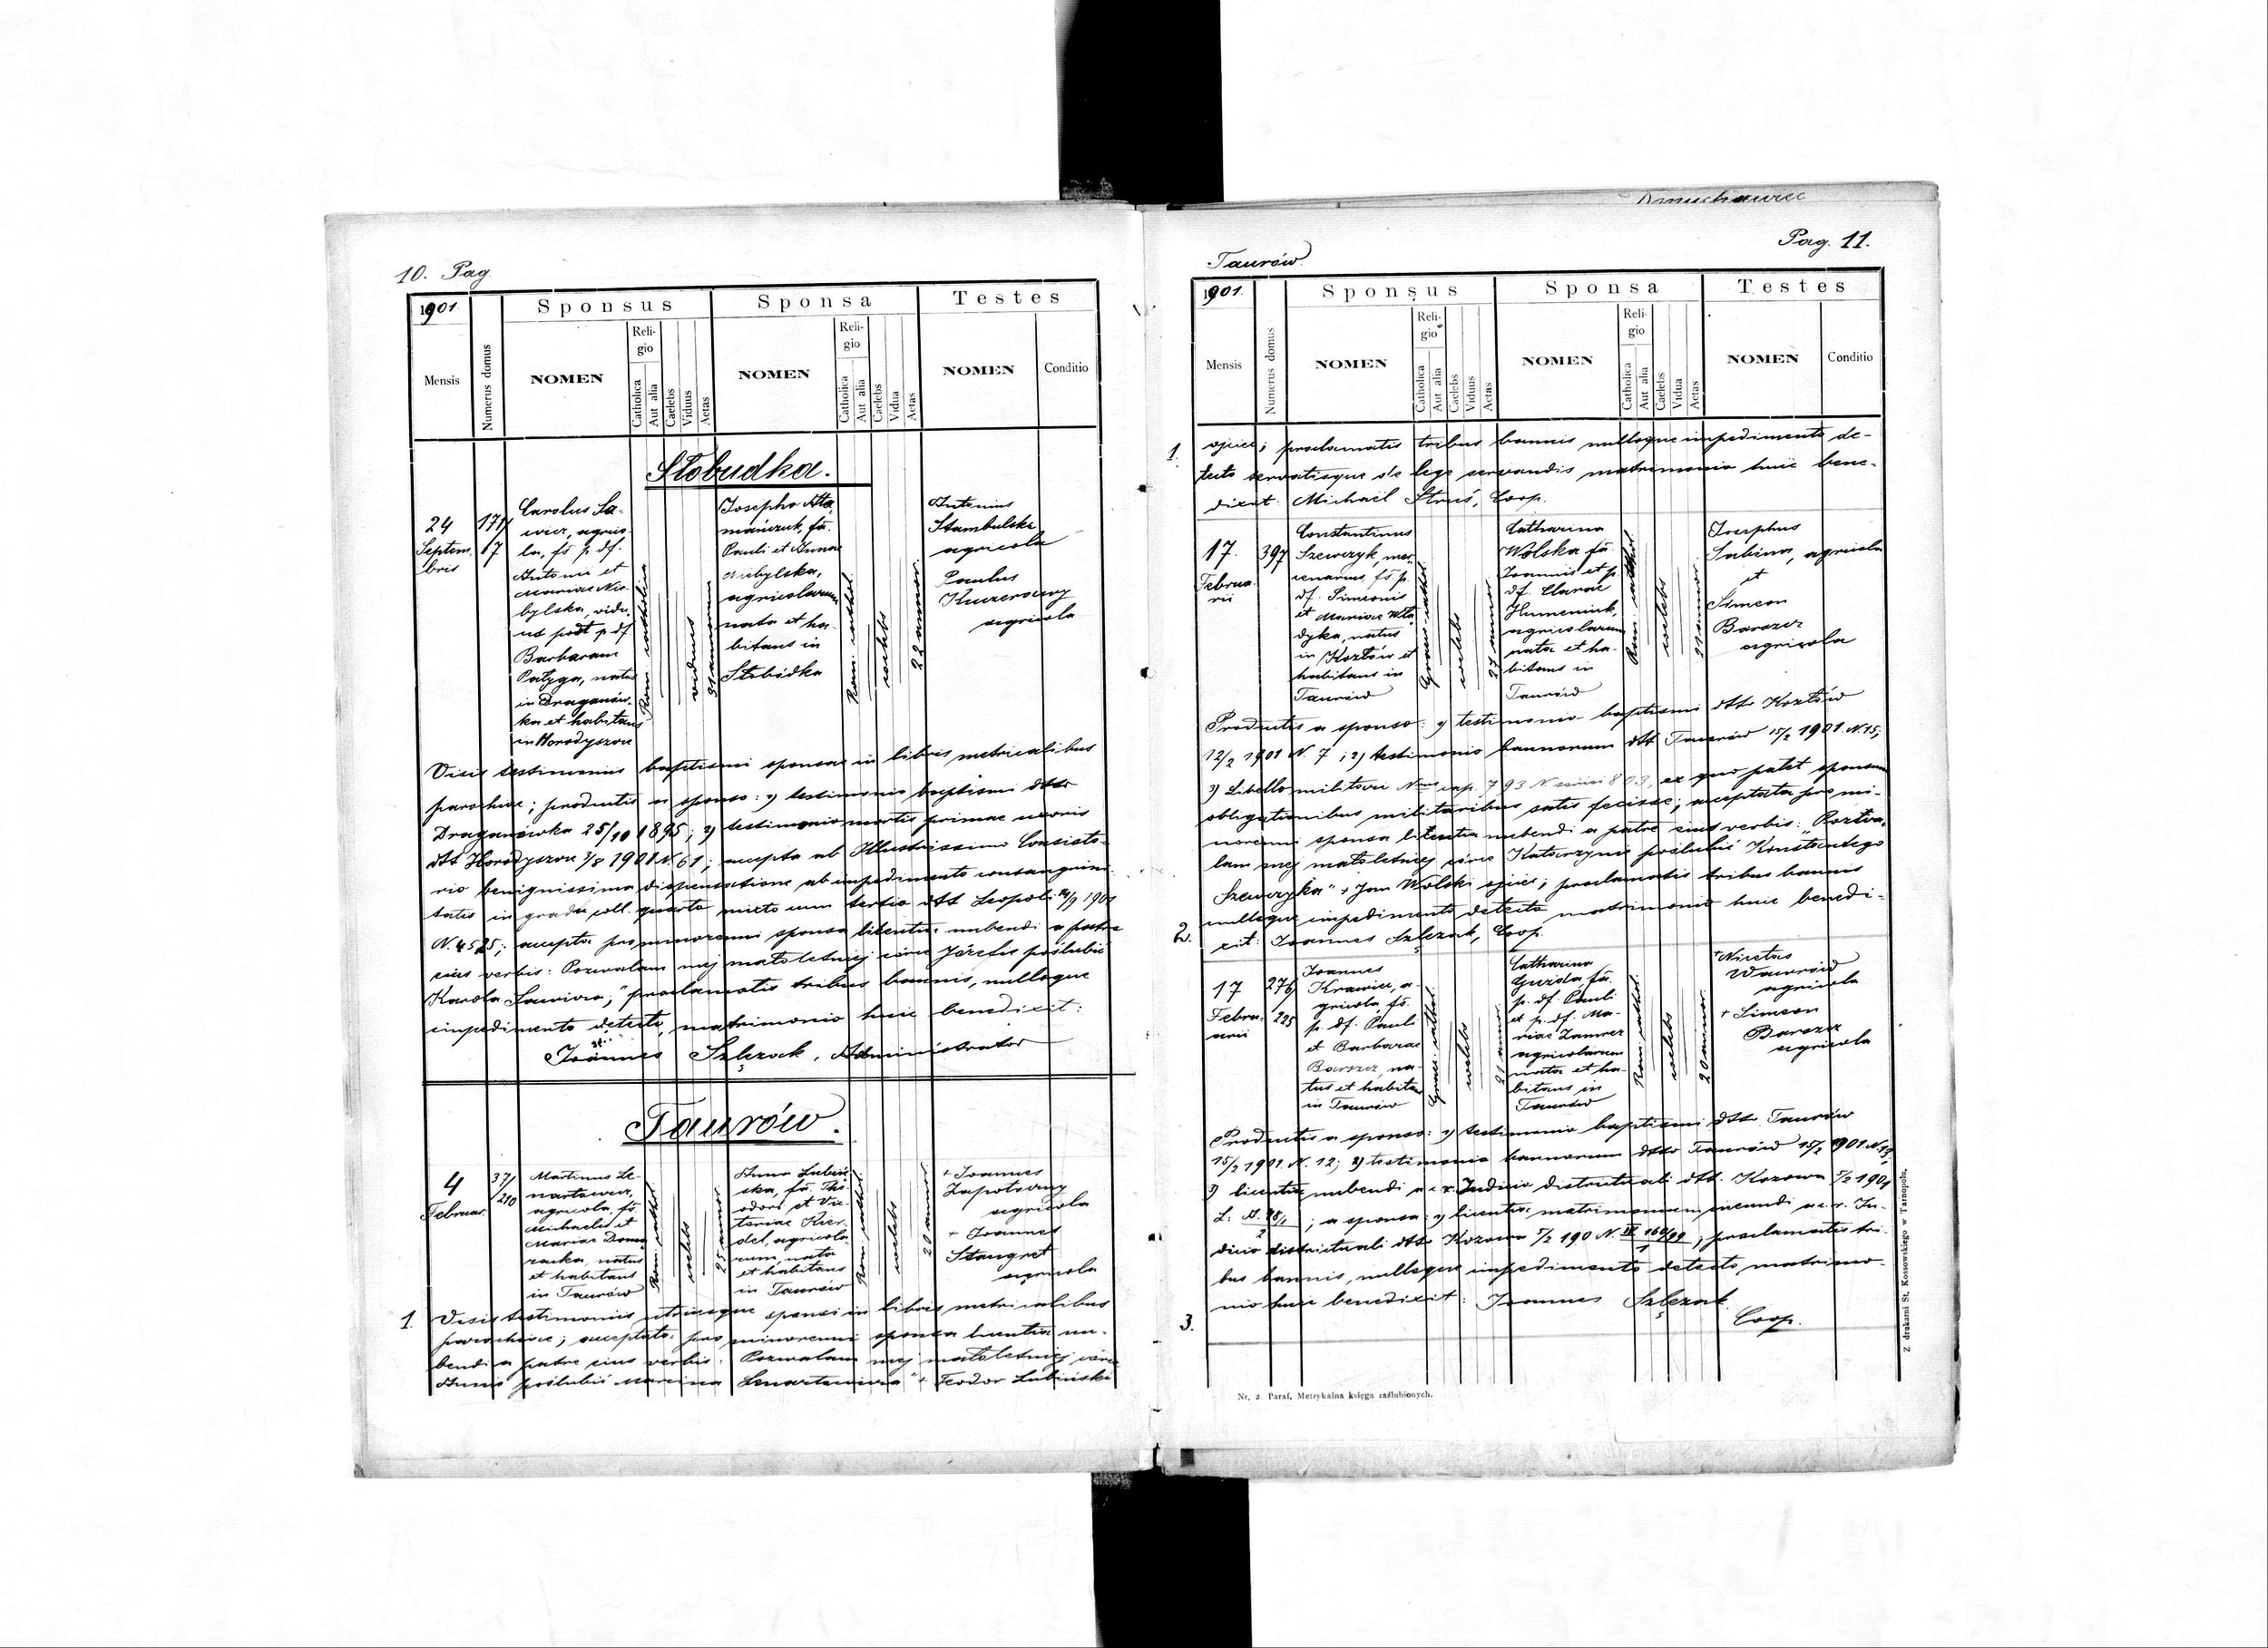 10. Pag
1901
Sponsus
Sponsa
Testes
Mensis
Numerus domus
NOMEN
Religio
Catholica
Aut alia
Caelebs
Viduus
Aetas
NOMEN
Religio
Catholica
Aut alia
Caelebs
Vidua
Aetas
NOMEN
Conditio
Słobudka.
24
Septem.
bris
171/
67
Carolus Sa-
wicz, agrico-
la, fs p. df.
Antonii et
Mariae Nie-
bylska, vidu-
us post p. df.
Barbaram
Pałyga, natus
in Draganów-
ka et habitans
in Horodyszcze
Rom. catholica
viduus
31 annorum
Josepha Ata-
mańczuk, fa.
Pauli et Annae
Niebylska,
agricolarum
nata et ha-
bitans in
Słobódka
Rom. cathol.
caelebs
22 annor.
Antonius
Stambulski
agricola
Paulus
Kuzerowny
agricola
Visis testimoniis baptismi sponsae in libris metricalibus
parochiae; productis a sponso: 1) testimonio baptismi dtto
Draganówka 25/10 1895; 2) testimonio mortis primae uxoris
dtt Horodyszcze 3/8 1901 N. 61; accepta ab Illustrissimo Consisto-
rio benignissima dispensatione ab impedimento consanguini-
tatis in gradu coll. quarto mixto cum tertio dtt Leopoli /9 1901
N. 4525; accepta pro minorenni sponsa licentia nubendi a patre
eius verbis: Pozwalam mej małoletniej córce Józefie poślubić
Karola Sawicza;" proclamatis tribus bannis, nulloque
impedimento detecto, matrimonio huic benedixit:
Joannes Szlęzak, Administrator
Taurów.
4
Februar.
37/
210
Martinus Le-
nartowicz,
agricola, fs.
Michaelis et
Mariae Doma-
racka, natus
et habitans
in Taurów
Rom. cathol.
caelebs
25 annor.
Anna Lubiń-
ska, fa. Thé-
odori et Vic-
toriae Kier-
del, agricola-
rum, nata
et habitans
in Taurów
Rom. cathol.
caelebs
20 annor.
+ Joannes
Zapotoczny
agricola
+ Joannes
Stangret
agricola
1.
Visis testimoniis utriusque sponsi in libris metricalibus
parochiae; acceptata pro minorenni sponsa licentia nu-
bendi a patre eius verbis: Pozwalam mej małoletniej córce
Annie poślubić Marcina Lenartowicza" + Teodor Lubiński
Pag. 11.
Taurów
1901.
Sponsus
Sponsa
Testes
Mensis
Numerus domus
NOMEN
Religio
Catholica
Aut alia
Caelebs
Viduus
Aetas
NOMEN
Religio
Catholica
Aut alia
Caelebs
Vidua
Aetas
NOMEN
Conditio
1.
ojciec; proclamatis tribus bannis nulloque impedimento de-
tecto servatisque de lege servandis matrimonio huic bene-
dixit: Michaël Struś, Coop.
17.
Februa-
rii
397
Constantinus
Szewczyk, mer-
cenarius, fs p.
df. Simeonis
et Mariae Wła-
dyka, natus
in Kozłów et
habitans in
Taurów
Graeco-cathol.
caelebs
27 annor.
Catharina
Wolska fa.
Joannis et p.
df. Clarae
Humeniuk,
agricolarum
nata et ha-
bitans in
Taurów
Rom. cathol.
caelebs
21 annor.
Josephus
Sabina, agricola
et
Simeon
Barszcz
agricola
Productis a sponso: 1) testimonio baptismi dtto Kozłów
12/2 1901 N. 7; 2) testimonio bannorum dtt Taurów 15/2 1901 N. 15;
3) Libello militari cap. 793 N 803, ex quo patet sponsum
obligationibus militaribus satis fecisse; acceptata pro mi-
norenni sponsa licentia nubendi a patre eius verbis: Poztwa-
lam mej małoletniej córce Katarzynie poślubić Konstantego
Szewczyka" + Jan Wolski ojciec; proclamatis tribus bannis
nulloque impedimento detecto matrimonio huic benedi-
2.
xit: Joannes Szlęzak, Coop.
17
Febru-
arii
276/
225
Joannes
Krawiec, a-
gricola, fs.
p. df. Pauli
et Barbarae
Barszcz, na-
tus et habita
in Taurów
Graec. cathol.
caelebs
21 annor.
Catharina
Guzda, fa.
p. df. Pauli
et p. df. Ma-
riae Zamroz
agricolarum
nata et ha-
bitans in
Taurów
Rom. cathol.
caelebs
20 annor.
+ Nicetas
Wawrów
agricola
+ Simeon
Barszcz
agricola
Productis a sponso: 1) testimonio baptismi dtto Taurów
15/2 1901. N. 12; 2) testimonio bannorum dtto Taurów 15/2 1901. N. 13;
3) licentia nubendi a c. r. Judicio districtuali dtt. Kozowa 5/2 1901
; a sponsa: 1) licentia matrimonium ineundi a c. r. Ju-
dicio districtuali dtto Kozowa 5/2 190 N. IV 160/99 1; proclamatis tri-
bus bannis, nulloque impedimento detecto matrimo-
nio huic benedixit: Joannes Szlęzak
Coop.
3.
Nr. 2. Paraf. Metrykalna księga zaślubionych.
Z drukarni St. Kossowskiego w Tarnopolu.